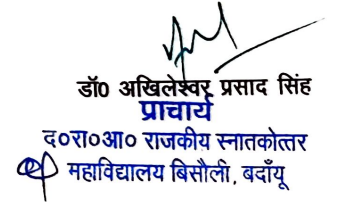 डॉ0 अखिलेश्वर प्रसाद सिंह
प्राचार्य
द०रा०आ० राजकीय स्नातकोत्तर
महाविद्यालय बिसौली, बदाँयू